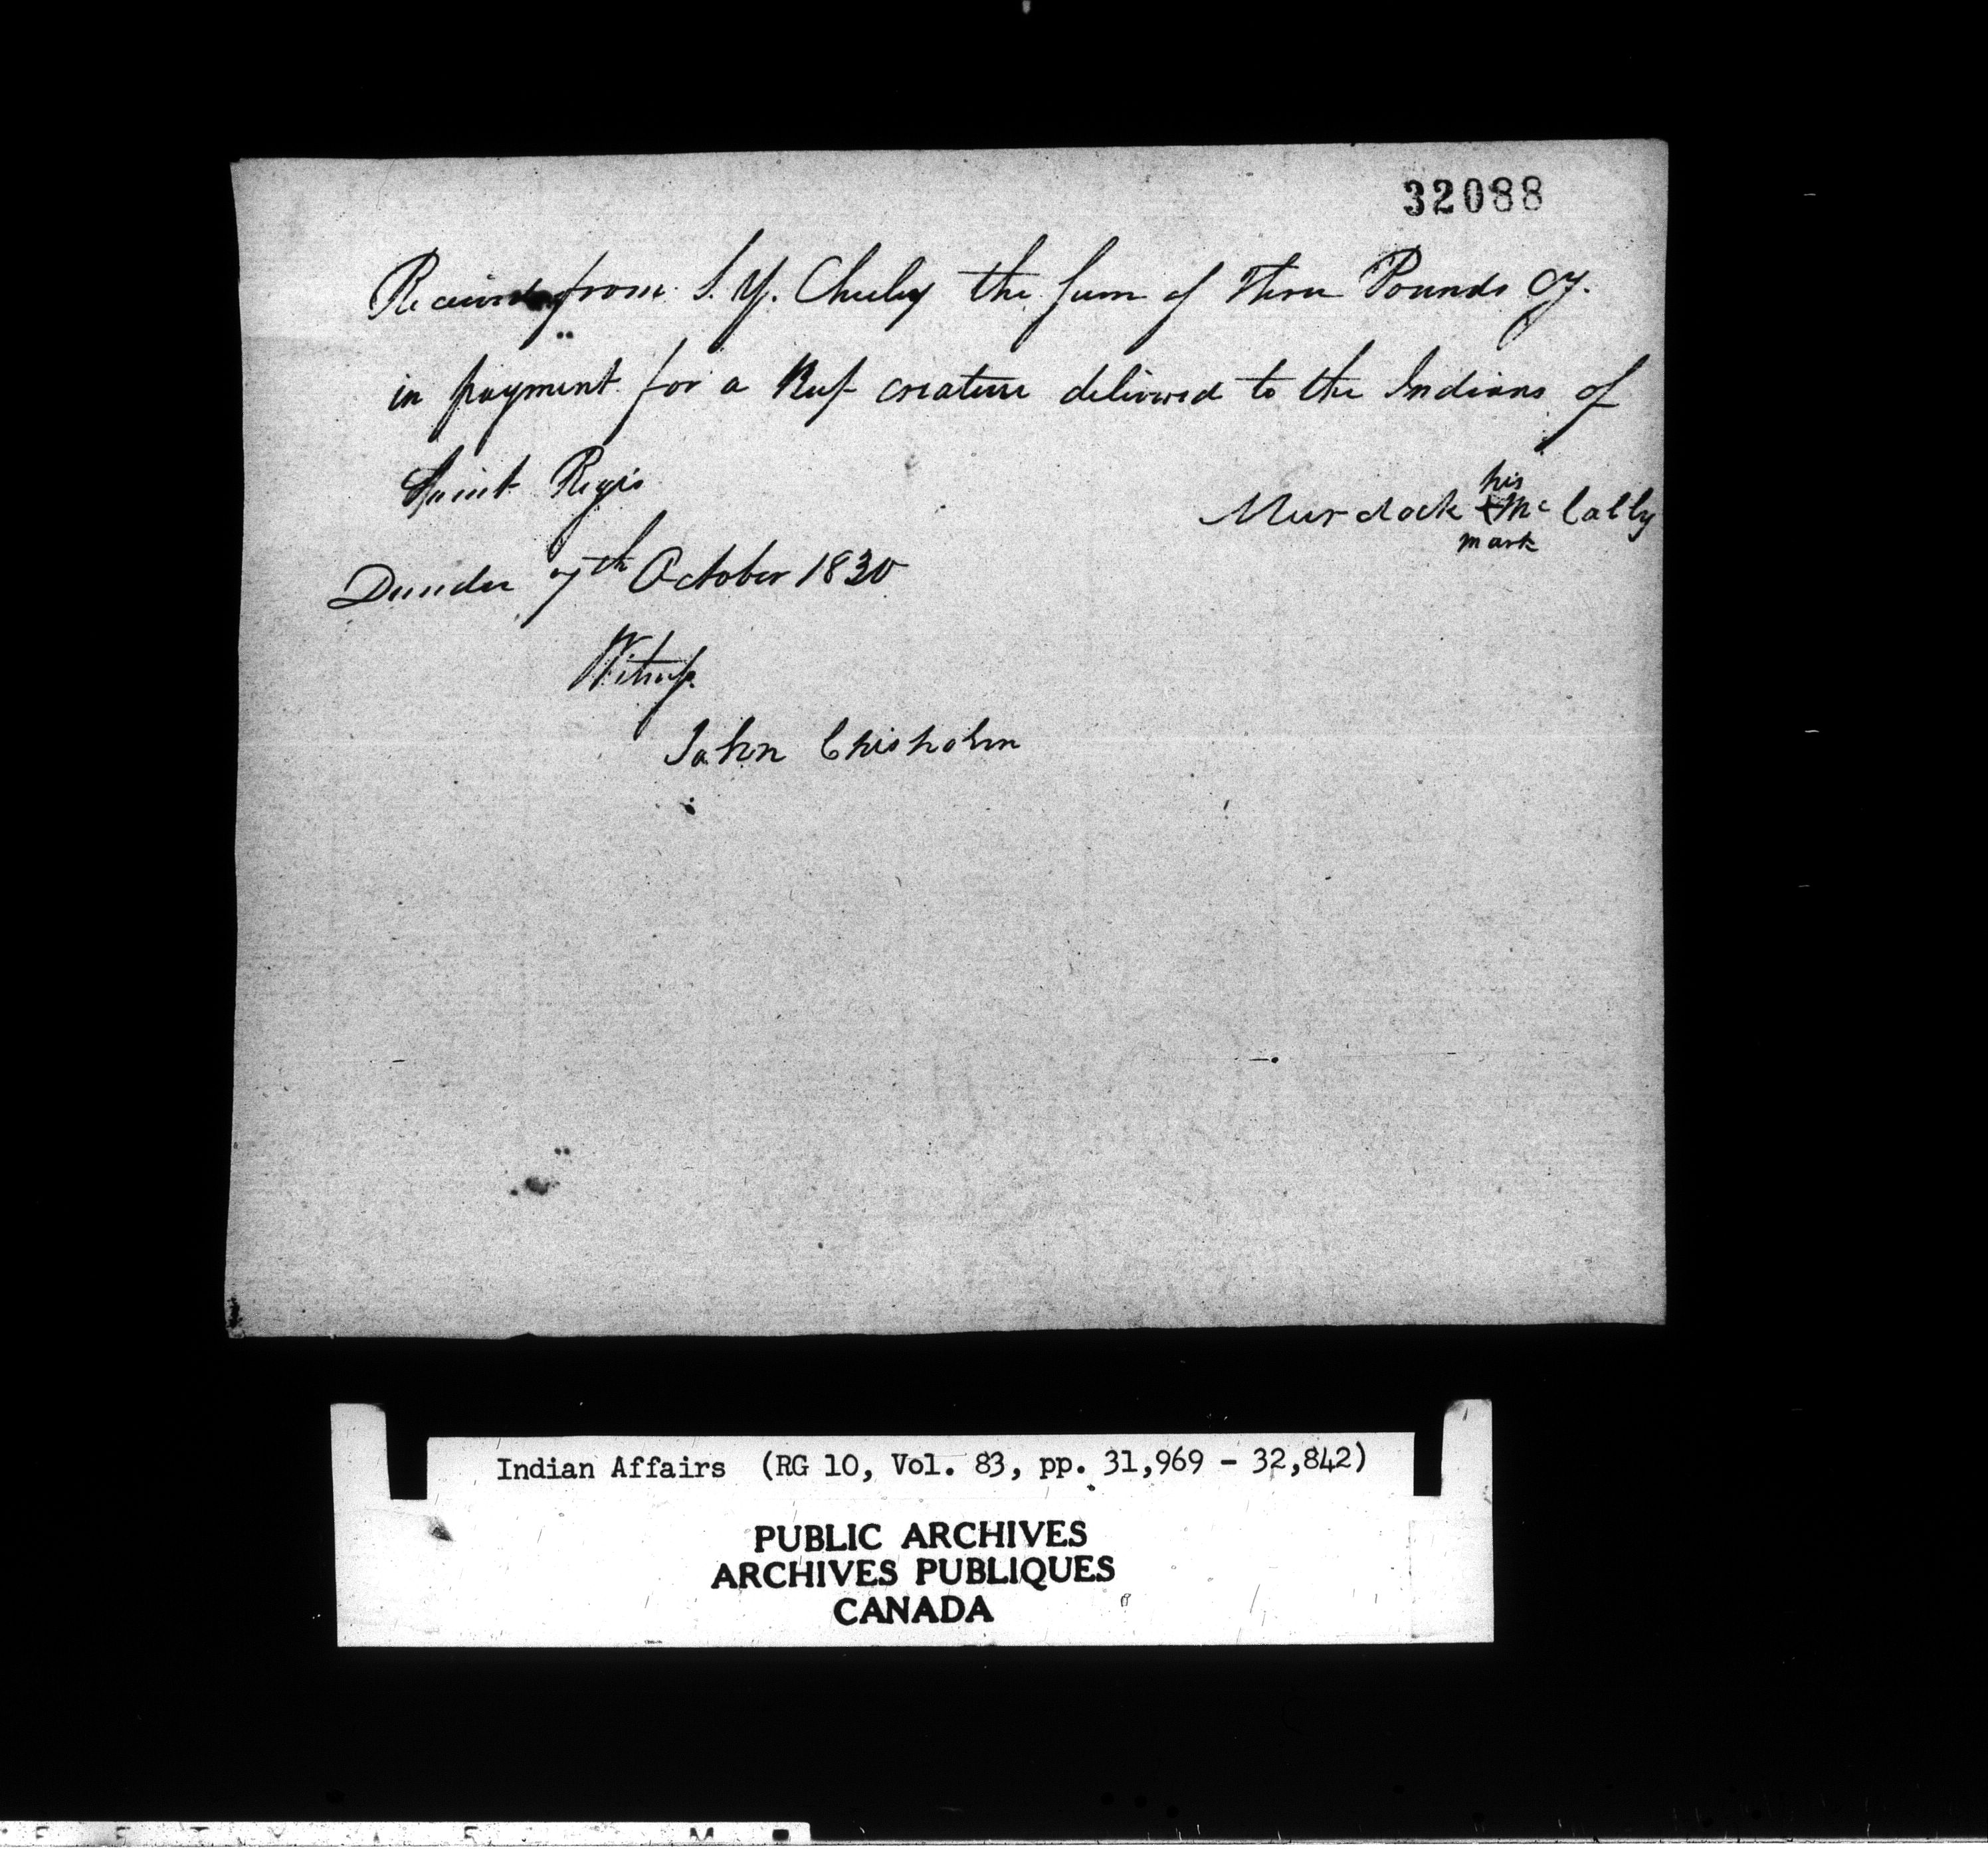 32088
Received from S. Y. Chesley the sum of Three Pounds Cy.
in payment for a Beef creature delivered to the Indians of
Saint Regis
his
Murdock X Mc Cally
mark
Dundee 7th October 1830
Witness
John Chisholm
Indian Affairs (RG 10, Vol. 83, pp. 31,969 - 32,842)
PUBLIC ARCHIVES
ARCHIVES PUBLIQUES
CANADA